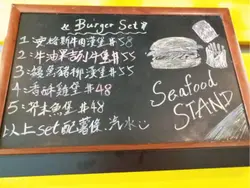 Burger Set
1:安格斯牛肉漢堡 #58
2:牛油果吉列牛堡 #55
3:鱈魚豬柳漢堡 #55
4:香味雞堡 #48
5:芥末魚堡 #48
以上set配薯條、汽水
Seafood
STAND